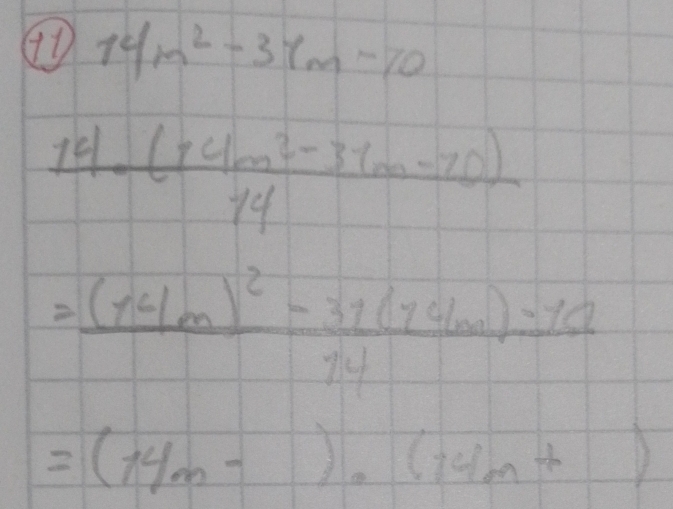 11 14m² - 31m - 10
14 . (14m² - 31m - 10)
14
= (14m)² - 31(14m) - 10
14
= (14m - ) . (14m + )